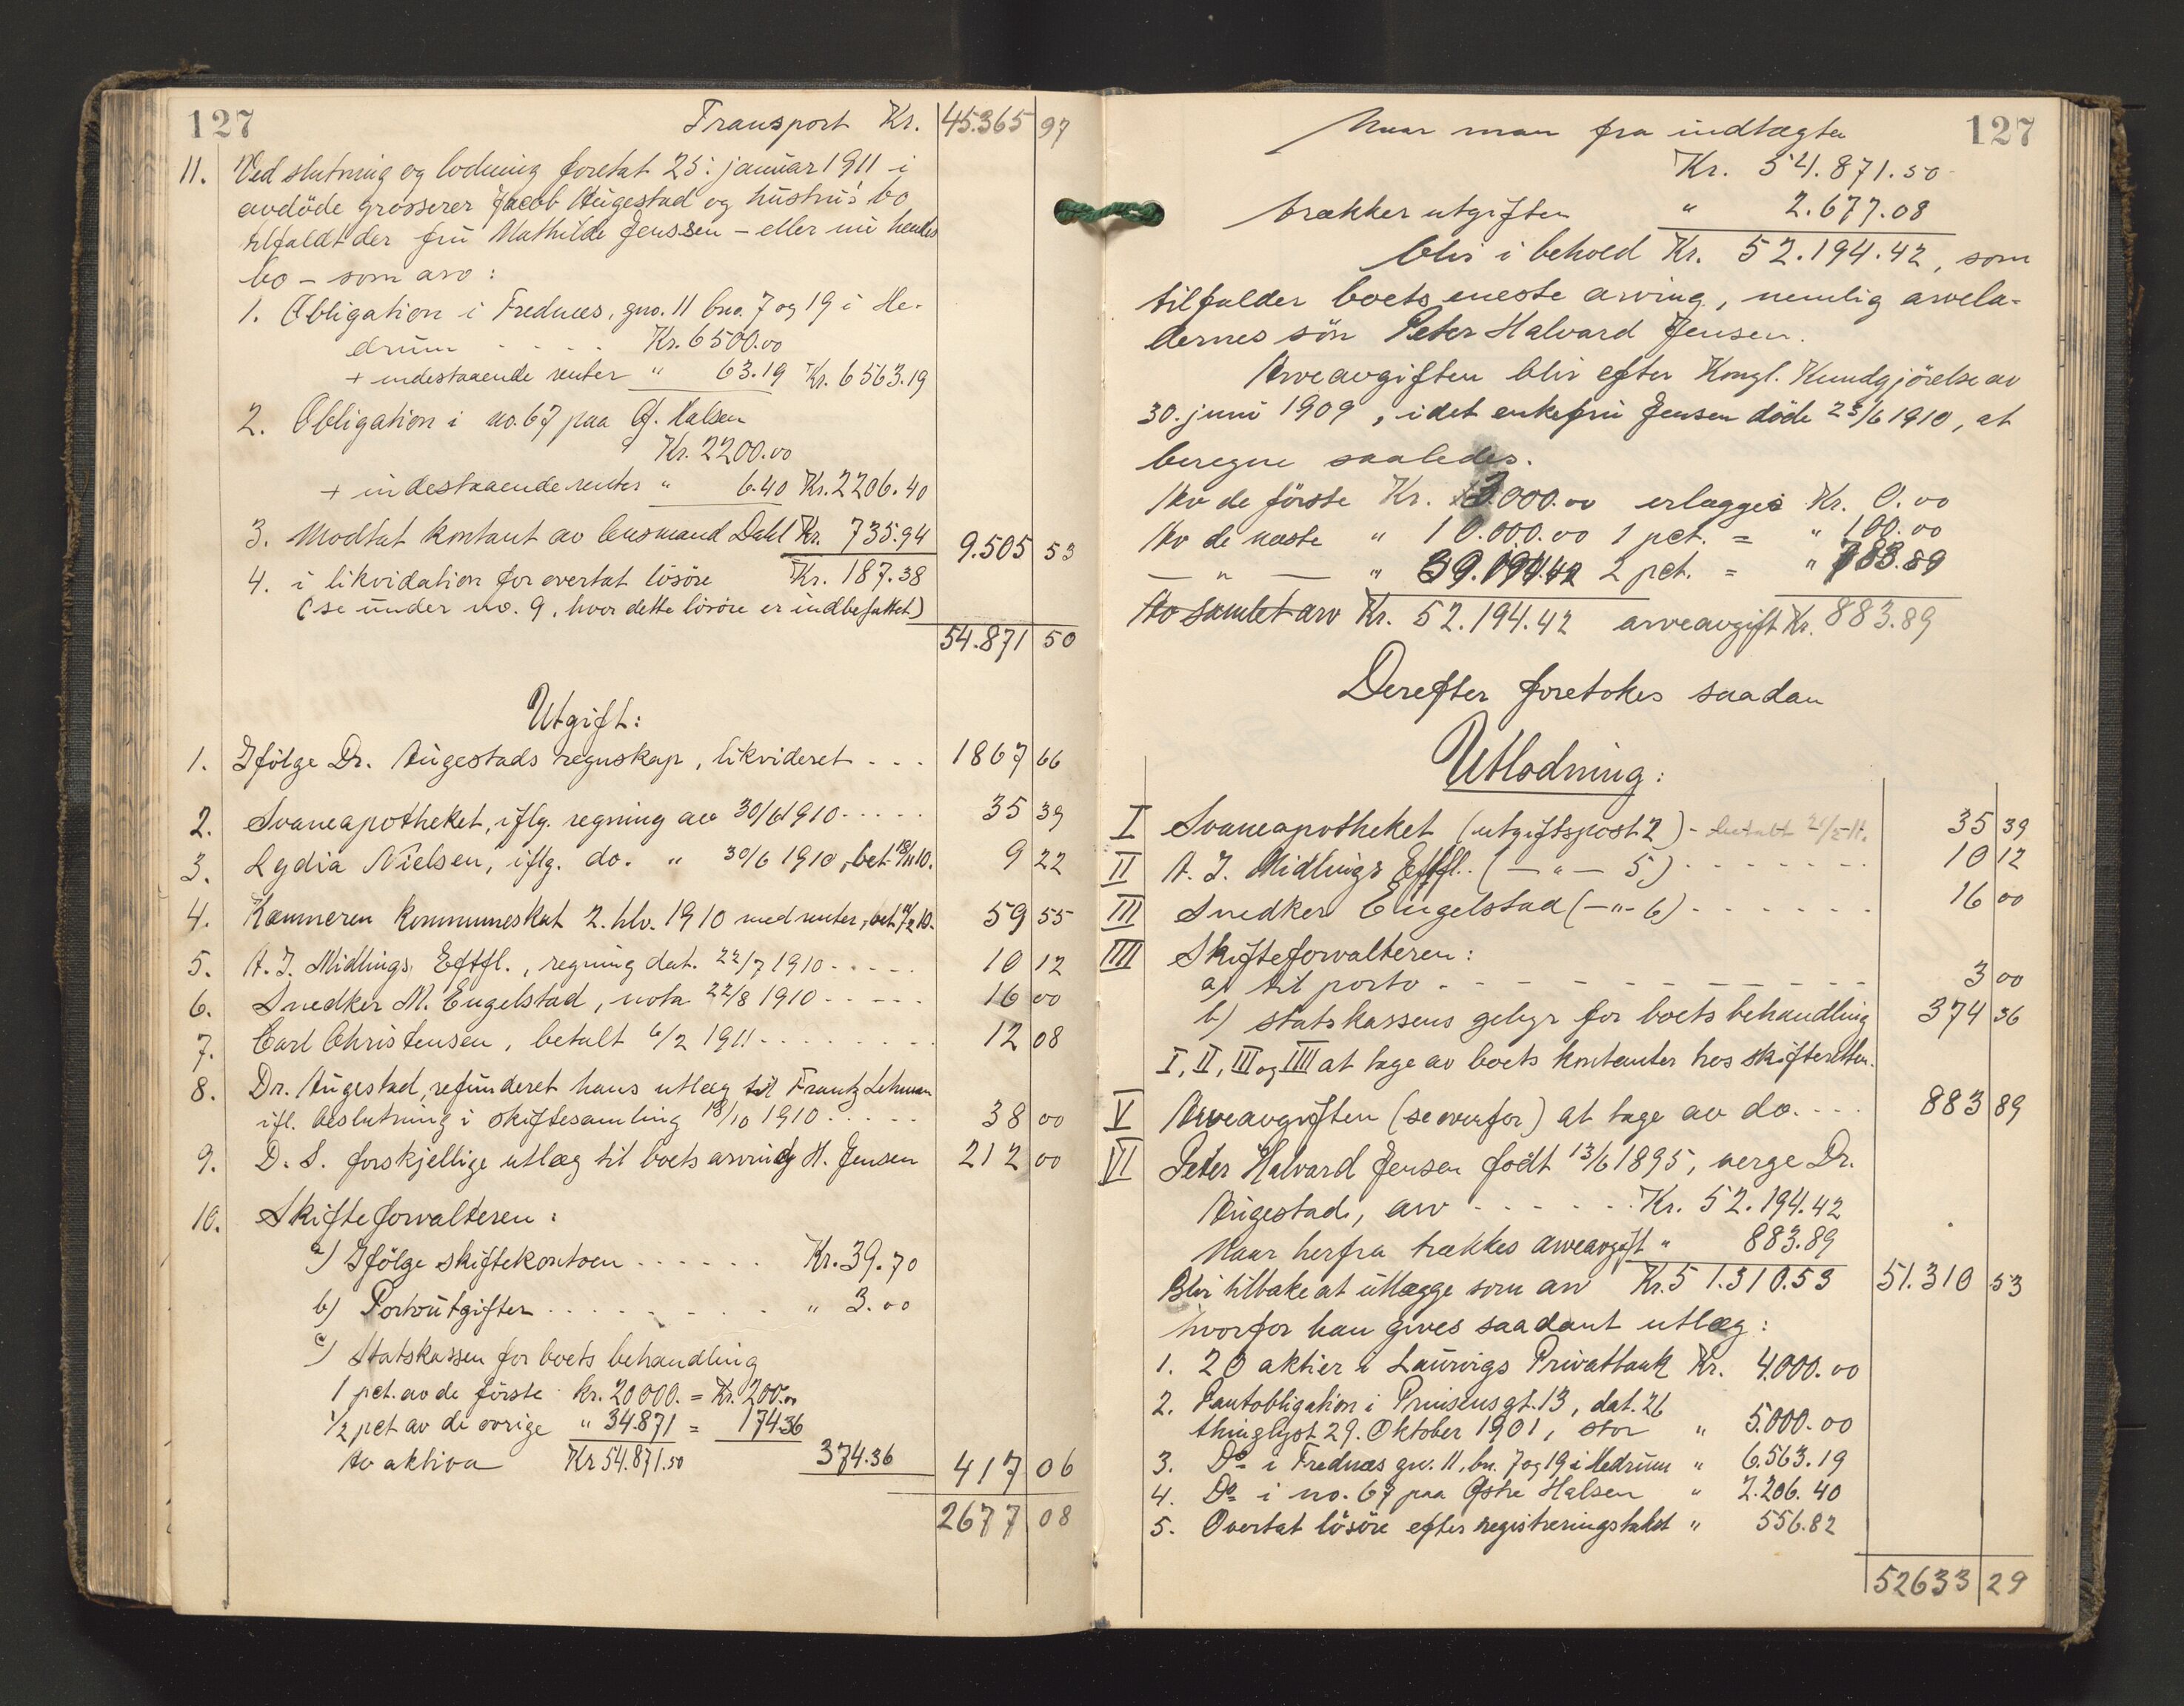 127
Transport Kr. 45.365 97
11. Ved slutning og lodning foretat 25. januar 1911 i
avdöde grosserer Jacob Augestad og hustru's bo
tilfaldt der fru Mathilde Jenssen – eller nu hendes
bo – som arv:
1. Obligation i Frednæs, gno. 11 bno. 7 og 19 i He-
drum . . . . Kr. 6500.00
+ indestaaende renter " 63.19 Kr. 6563.19
2. Obligation i no. 67 paa Ø. Halsen
Kr. 2200.00
+ indestaaende renter " 6.40 Kr. 2206.40
3. Modtat kontant av lensmand Dahl Kr. 735.94 9.505 53
4. i likvidation for overtat lösöre Kr. 187.38
(se under no. 9, hvor dette lösöre er indbefattet)
54.871 50
Utgift:
1. Ifölge Dr. Augestads regnskap, likvideret . . . 1867 66
2. Svaneapotheket, iflg. regning av 30/6 1910 . . . . . 35 39
3. Lydia Nielsen, iflg. do. " 30/6 1910, bet. 18/11 10. 9 22
4. Kæmneren kommuneskat 2. hlv. 1910 med renter, bet. 10. 59 55
5. A. J. Midlings Eftfl., regning dat. 22/7 1910 . . . . . 10 12
6. Snedker M. Engelstad, nota 22/8 1910 . . . . . 16 00
7. Carl Christensen, betalt 6/2 1911 . . . . . . . . 12 08
8. Dr. Augestad, refunderet hans utlæg til Frantz Lehman
ifl. beslutning i skiftesamling 18/10 1910 . . . . . 38 00
9. D. S. forskjellige utlæg til boets arving H. Jensen 212 00
10. Skifteforvalteren:
a) Ifölge skiftekontoen . . . . . . Kr. 39.70
b) Portoutgifter . . . . . . . . . " 3.00
c) Statskassen for boets behandling
1 pct. av de förste Kr. 20000. = Kr. 200.00
1/2 pct av de övrige " 34.871 = 174.36
Av aktiva Kr 54.871.50 374.36 417 06
2677 08
127
Naar man fra indtægten
Kr. 54.871.50
trækker utgiften " 2.677.08
blir i behold Kr. 52.194.42, som
tilfalder boets eneste arving, nemlig arvela-
dernes sön Peter Halvard Jensen.
Arveavgiften blir efter Kongl. Kundgjörelse av
30. juni 1909, idet enkefru Jensen döde 25/6 1910, at
beregne saaledes.
Av de förste Kr. 3.000.00 erlægges Kr. 0.00
Av de næste " 10.000.00 1 pct. = " 100.00
— " — " 39.194.42 2 pct. = " 783.89
Av samlet arv Kr. 52.194.42 arveavgift Kr. 883.89
Derefter foretokes saadan
Utlodning:
I Svaneapotheket (utgiftspost 2) - betalt 35 39
II A. J. Midlings Eftfl. (— " — 5) . . . . . . . . 10 12
III Snedker Engelstad (— " - 6) . . . . . . . 16 00
IIII Skifteforvalteren:
a) til porto - - - - - - - - - - - 3 00
b) statskassens gebyr for boets behandling 374 36
I, II, III og IIII at tage av boets kontanter hos skifteretten.
V Arveavgiften (se ovenfor) at tage av do. . . . 883 89
VI Peter Halvard Jensen födt 13/6 1895, verge Dr.
Augestad, arv . . . . . . Kr. 52.194.42
Naar herfra trækkes arveavgift " 883.89
Blir tilbake at utlægge som arv Kr. 51.310.53 51.310 53
hvorfor han gives saadant utlæg:
1. 20 aktier i Laurvigs Privatbank Kr. 4.000.00
2. Pantobligation i Prinsensgt. 13, dat. 26
thinglyst 29. Oktober 1901, stor " 5.000.00
3. Do i Frednæs gn. 11, bn. 7 og 19 i Hedrum " 6.563.19
4. Do i no. 67 paa Østre Halsen " 2.206.40
5. Overtat lösöre efter registreringstakst " 556.82
52633 29